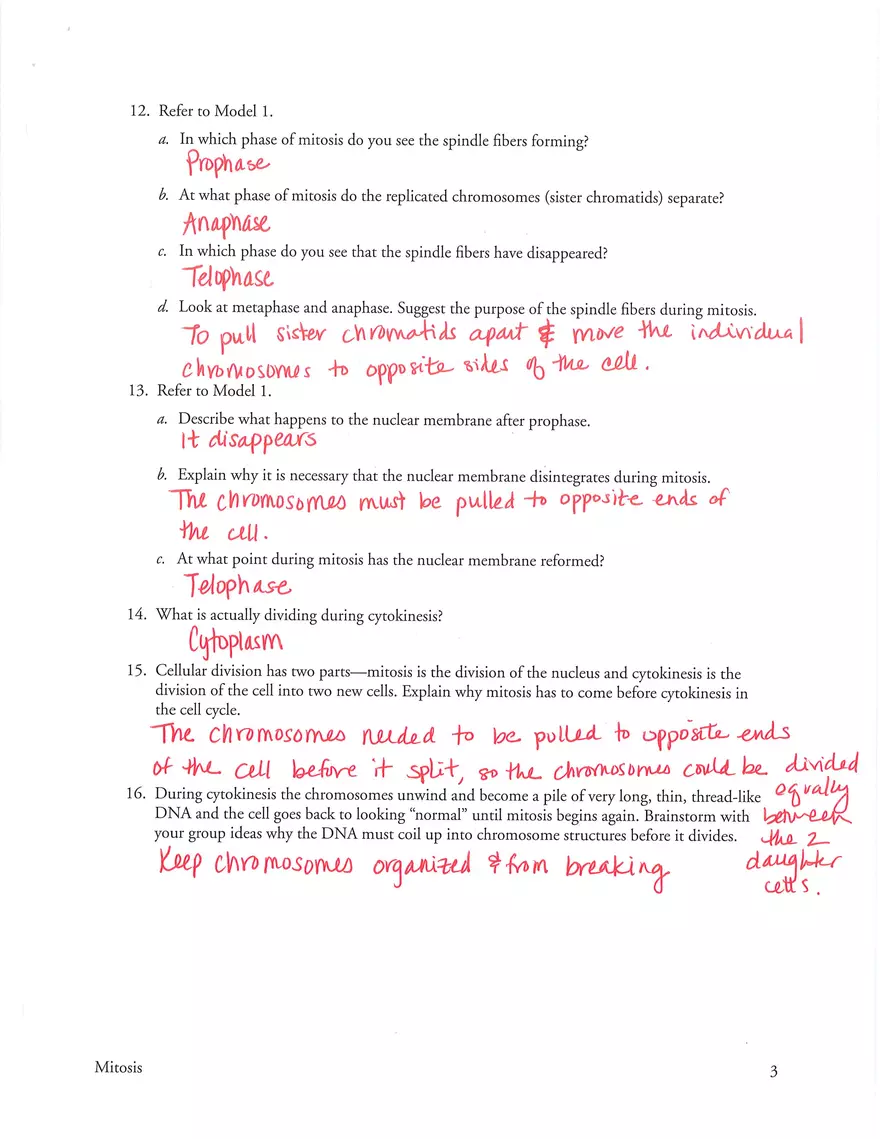 12. Refer to Model 1.
a. In which phase of mitosis do you see the spindle fibers forming?
Prophase
b. At what phase of mitosis do the replicated chromosomes (sister chromatids) separate?
Anaphase
c. In which phase do you see that the spindle fibers have disappeared?
Telophase
d. Look at metaphase and anaphase. Suggest the purpose of the spindle fibers during mitosis.
To pull sister chromatids apart & move the individual
chromosomes to opposite sides of the cell.
13. Refer to Model 1.
a. Describe what happens to the nuclear membrane after prophase.
It disappears
b. Explain why it is necessary that the nuclear membrane disintegrates during mitosis.
The chromosomes must be pulled to opposite ends of
the cell.
c. At what point during mitosis has the nuclear membrane reformed?
Telophase
14. What is actually dividing during cytokinesis?
Cytoplasm
15. Cellular division has two parts—mitosis is the division of the nucleus and cytokinesis is the
division of the cell into two new cells. Explain why mitosis has to come before cytokinesis in
the cell cycle.
The chromosomes needed to be pulled to opposite ends
of the cell before it split, so the chromosomes could be divided
eqvally
between
the 2
daughter
cells.
16. During cytokinesis the chromosomes unwind and become a pile of very long, thin, thread-like
DNA and the cell goes back to looking “normal” until mitosis begins again. Brainstorm with
your group ideas why the DNA must coil up into chromosome structures before it divides.
Keep chromosomes organized & from breaking
Mitosis
3